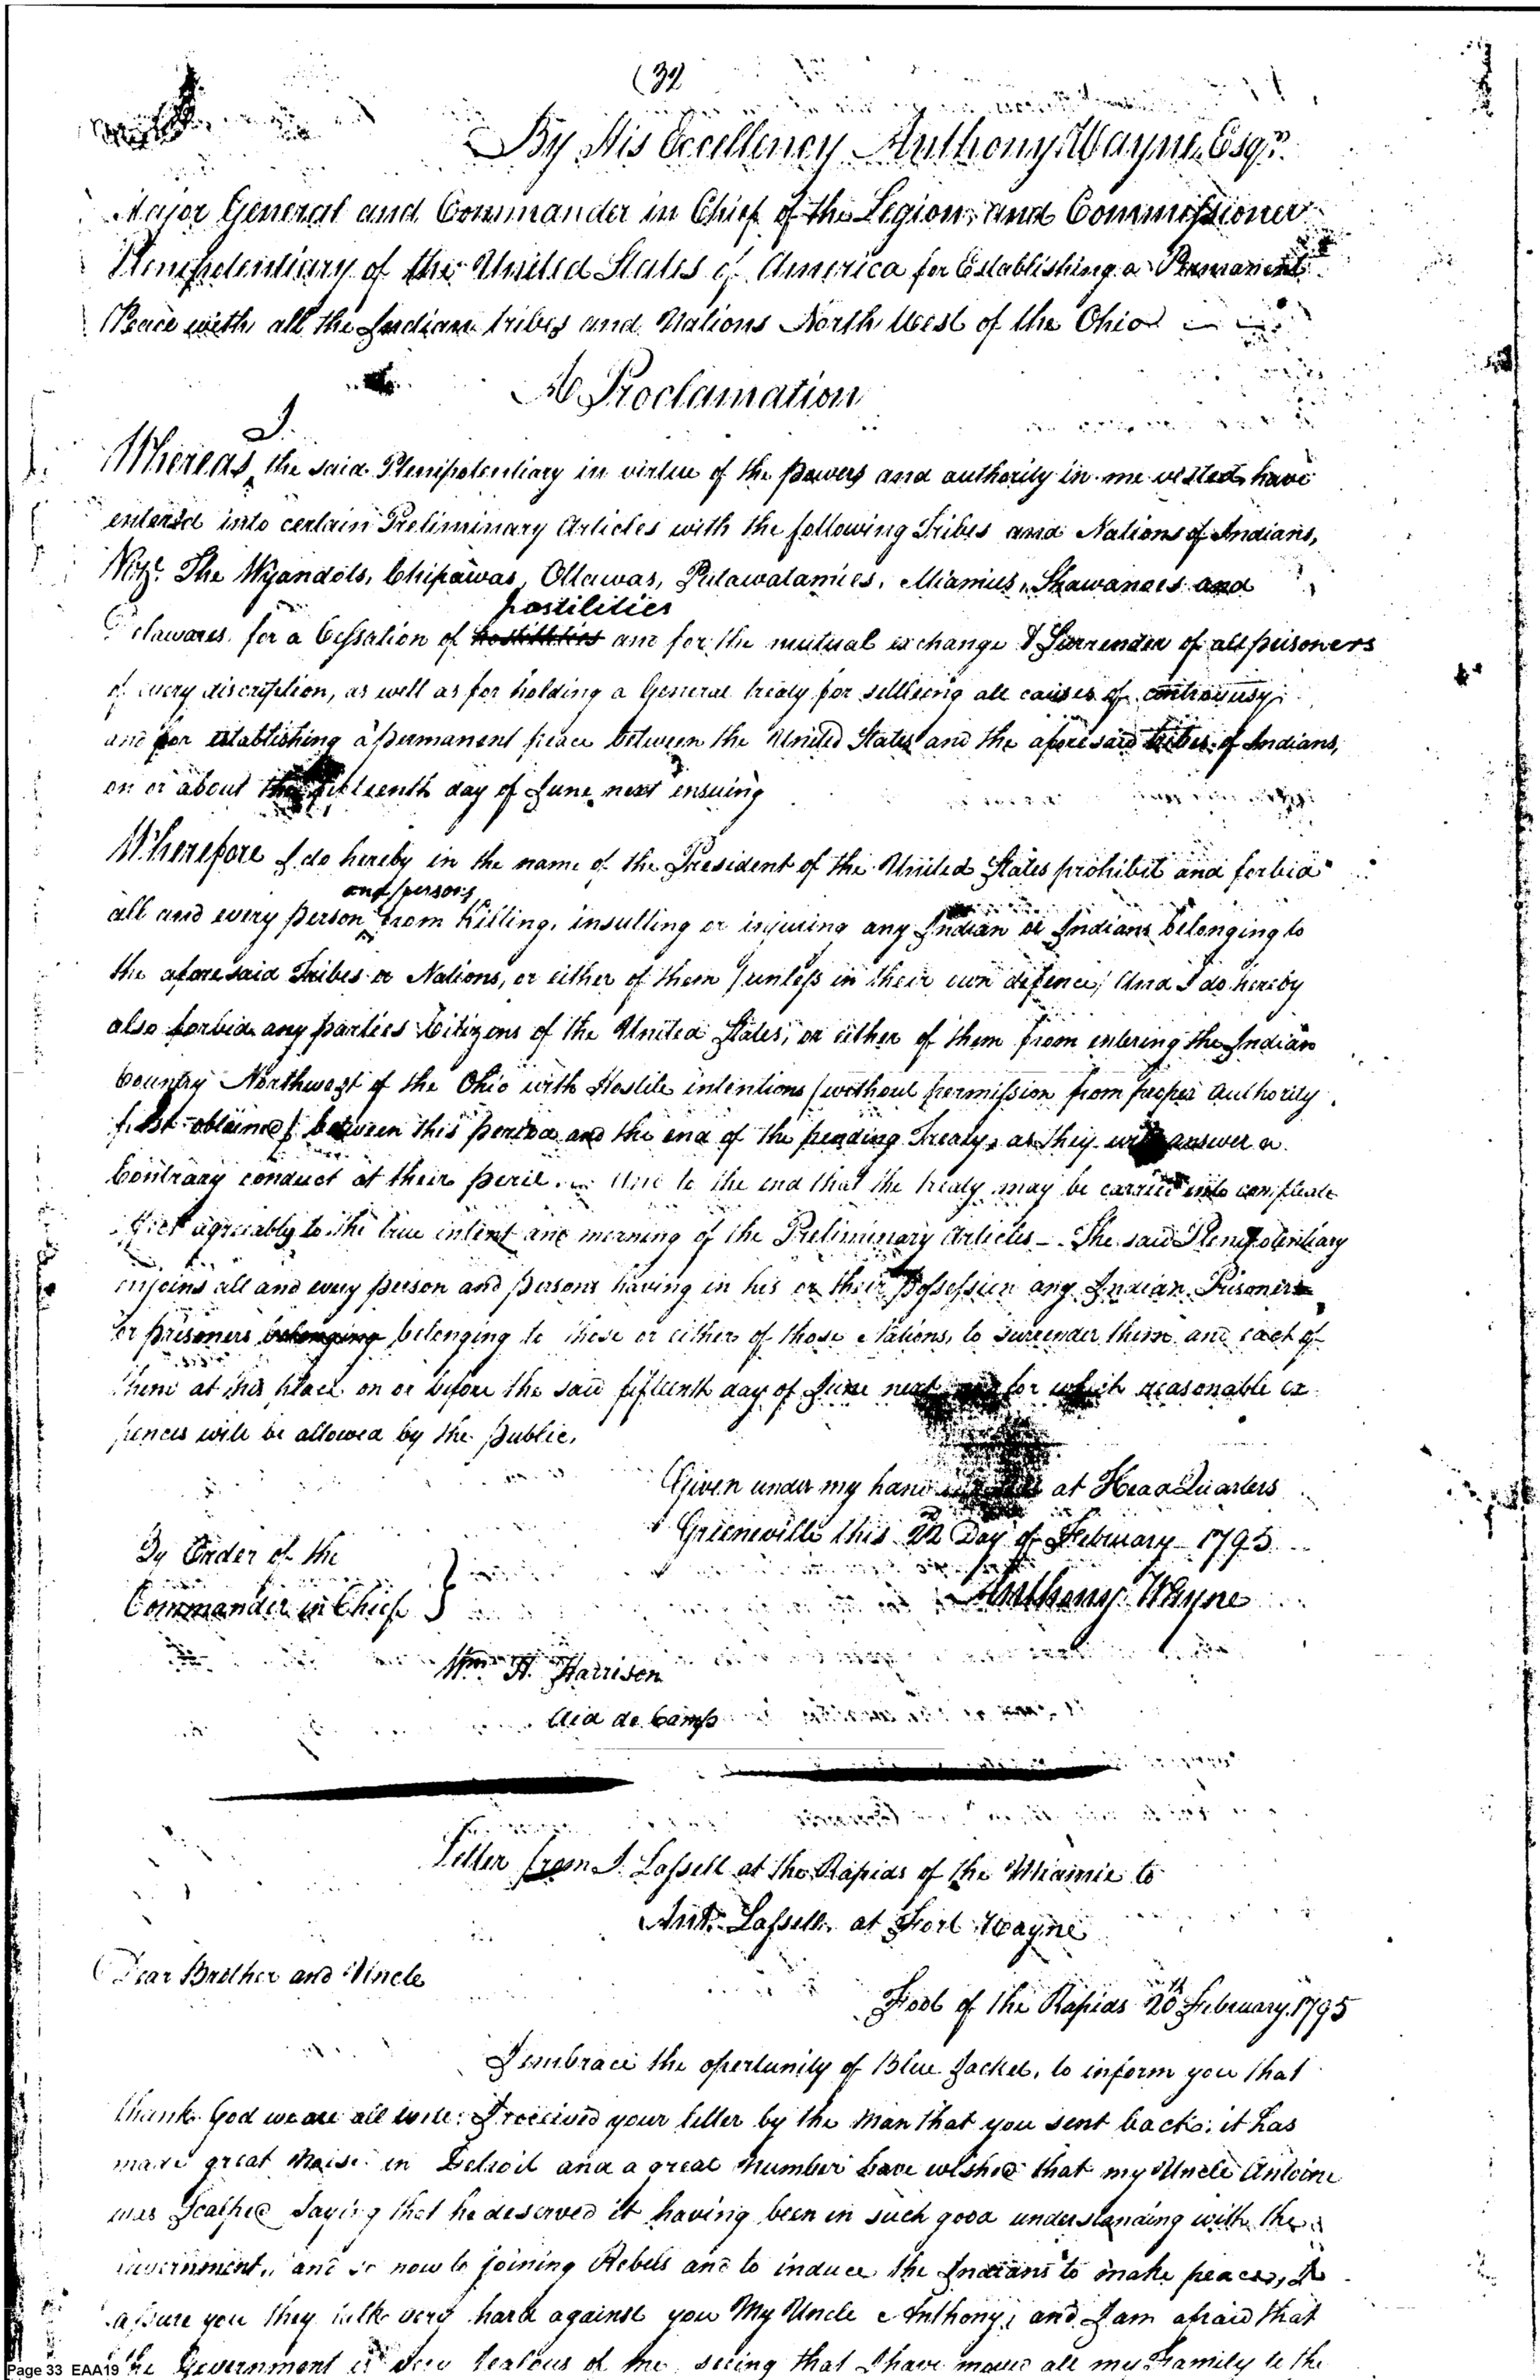 (32)
By His Excellency Anthony Wayne Esqr.
Major General and Commander in Chief of the Legion, and Commissioner
Plenipotentiary of the United States of America for Establishing a Permanent
Peace with all the Indian tribes and Nations North West of the Ohio
A Proclamation
I
Whereas, the said Plenipotentiary in virtue of the powers and authority in me vested have
entered into certain Preliminary Articles with the following Tribes and Nations of Indians,
Vizt. The Wyandots, Chipawas, Ottawas, Putawatamies, Miamies, Shawanoes and
hostilities
Delawares for a Cessation of hostilities and for the mutual exchange & Surrender of all prisoners
of every discription, as well as for holding a General treaty for settleing all causes of controversy
and for establishing a permanent peace between the United States and the aforesaid tribes of Indians,
on or about the fifteenth day of June next ensuing
Wherefore I do hereby in the name of the President of the United States prohibit and forbid
and persons
all and every person from Killing, insulting or injuring any Indian or Indians belonging to
the aforesaid Tribes or Nations, or either of them (unless in their own defence) And I do hereby
also forbid any parties Citizens of the United States, or either of them from entering the Indian
Country Northwest of the Ohio with Hostile intentions (without permission from proper Authority
first obtained) between this period and the end of the pending Treaty, as they will answer a
Contrary conduct at their peril. And to the end that the treaty may be carried into compleate
effect agreeably to the true intent and meaning of the Preliminary Articles - The said Plenipotentiary
enjoins all and every person and persons having in his or their possession any Indian Prisoner
or prisoners belonging belonging to these or either of those Nations, to surrender them and each of
them at this place on or before the said fifteenth day of June next for which reasonable ex
pences will be allowed by the public.
Given under my hand at Head Quarters
Greeneville this 22nd Day of February 1795
By Order of the
Commander in Chief }
Anthony Wayne
Wm H. Harrison
Aid de Camp
Letter from J. Lassell at the Rapids of the Miamie to
Ant. Lassell at Fort Wayne
Dear Brother and Uncle
Foot of the Rapids 20th February 1795
I embrace the opertunity of Blue Jacket, to inform you that
thank God we are all well: I received your letter by the Man that you sent back; it has
made great Noise in Detroit and a great Number have wished that my Uncle Antoine
was Scalped Saying that he deserved it having been in such good understanding with the
Government, and so now to joining Rebels and to induce the Indians to make peace, I
assure you they talk very hard against you My Uncle Anthony, and I am afraid that
the Government is very Jealous of me seeing that I have moved all my Family to the
Page 33 EAA19